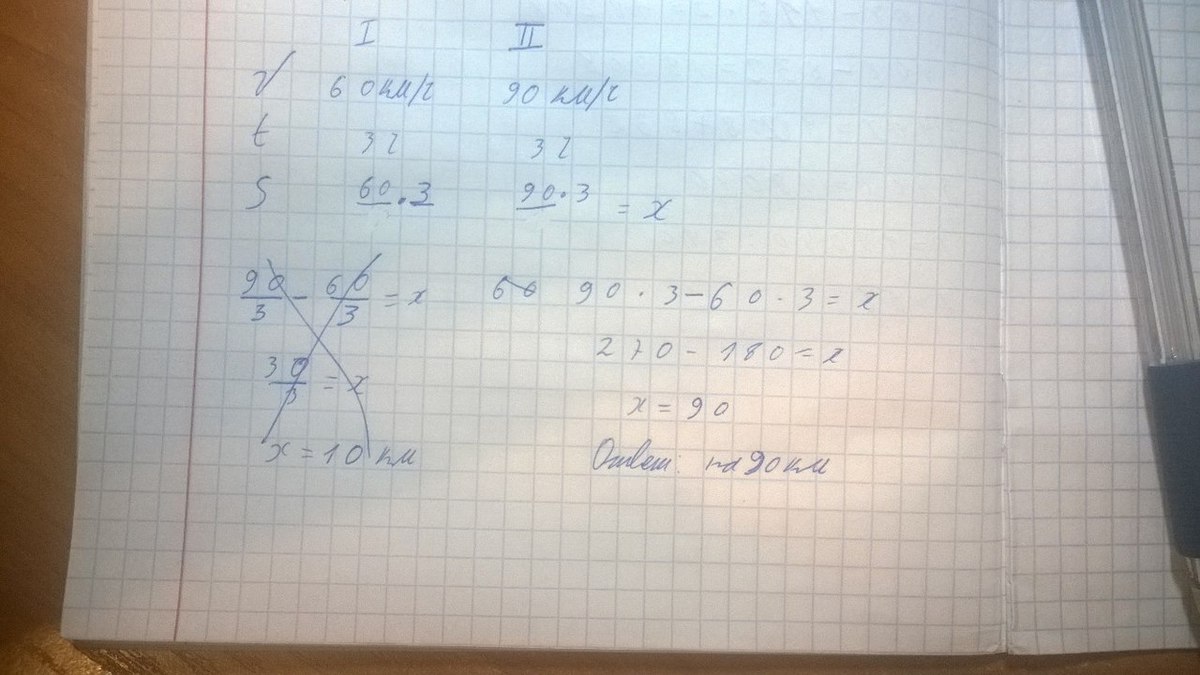 I II
V 60 км/ч 90 км/ч
t 3 ч 3 ч
S 60 · 3 90 · 3 = x
90/3 - 60/3 = x
30/3 = x
x = 10 км
60 90 · 3 - 60 · 3 = x
270 - 180 = x
x = 90
Ответ: на 90 км